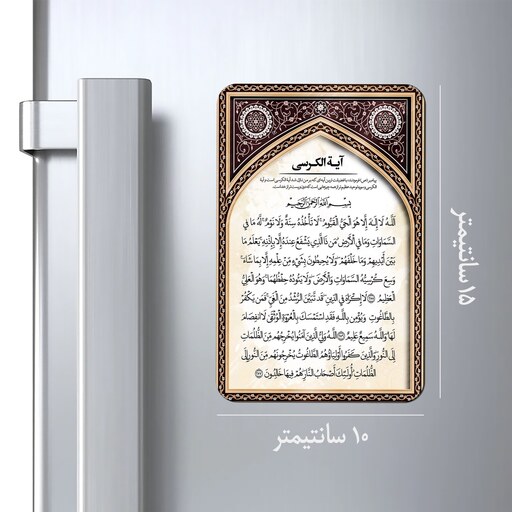 آیة الکرسی
بِسْمِ اللَّهِ الرَّحْمَنِ الرَّحِيمِ
اَللَّهُ لَا إِلَهَ إِلَّا هُوَ الْحَيُّ الْقَيُّومُ لَا تَأْخُذُهُ سِنَةٌ وَلَا نَوْمٌ لَهُ مَا فِي
السَّمَاوَاتِ وَمَا فِي الْأَرْضِ مَن ذَا الَّذِي يَشْفَعُ عِنْدَهُ إِلَّا بِإِذْنِهِ يَعْلَمُ مَا
بَيْنَ أَيْدِيهِمْ وَمَا خَلْفَهُمْ وَلَا يُحِيطُونَ بِشَيْءٍ مِنْ عِلْمِهِ إِلَّا بِمَا شَاءَ
وَسِعَ كُرْسِيُّهُ السَّمَاوَاتِ وَالْأَرْضَ وَلَا يَئُودُهُ حِفْظُهُمَا وَهُوَ الْعَلِيُّ
الْعَظِيمُ لَا إِكْرَاهَ فِي الدِّينِ قَدْ تَبَيَّنَ الرُّشْدُ مِنَ الْغَيِّ فَمَن يَكْفُرْ
بِالطَّاغُوتِ وَيُؤْمِن بِاللَّهِ فَقَدِ اسْتَمْسَكَ بِالْعُرْوَةِ الْوُثْقَى لَا انفِصَامَ
لَهَا وَاللَّهُ سَمِيعٌ عَلِيمٌ اللَّهُ وَلِيُّ الَّذِينَ آمَنُوا يُخْرِجُهُم مِّنَ الظُّلُمَاتِ
إِلَى النُّورِ وَالَّذِينَ كَفَرُوا أَوْلِيَاؤُهُمُ الطَّاغُوتُ يُخْرِجُونَهُم مِّنَ النُّورِ إِلَى
الظُّلُمَاتِ أُولَئِكَ أَصْحَابُ النَّارِ هُمْ فِيهَا خَالِدُونَ
۱۵ سانتیمتر
۱۰ سانتیمتر